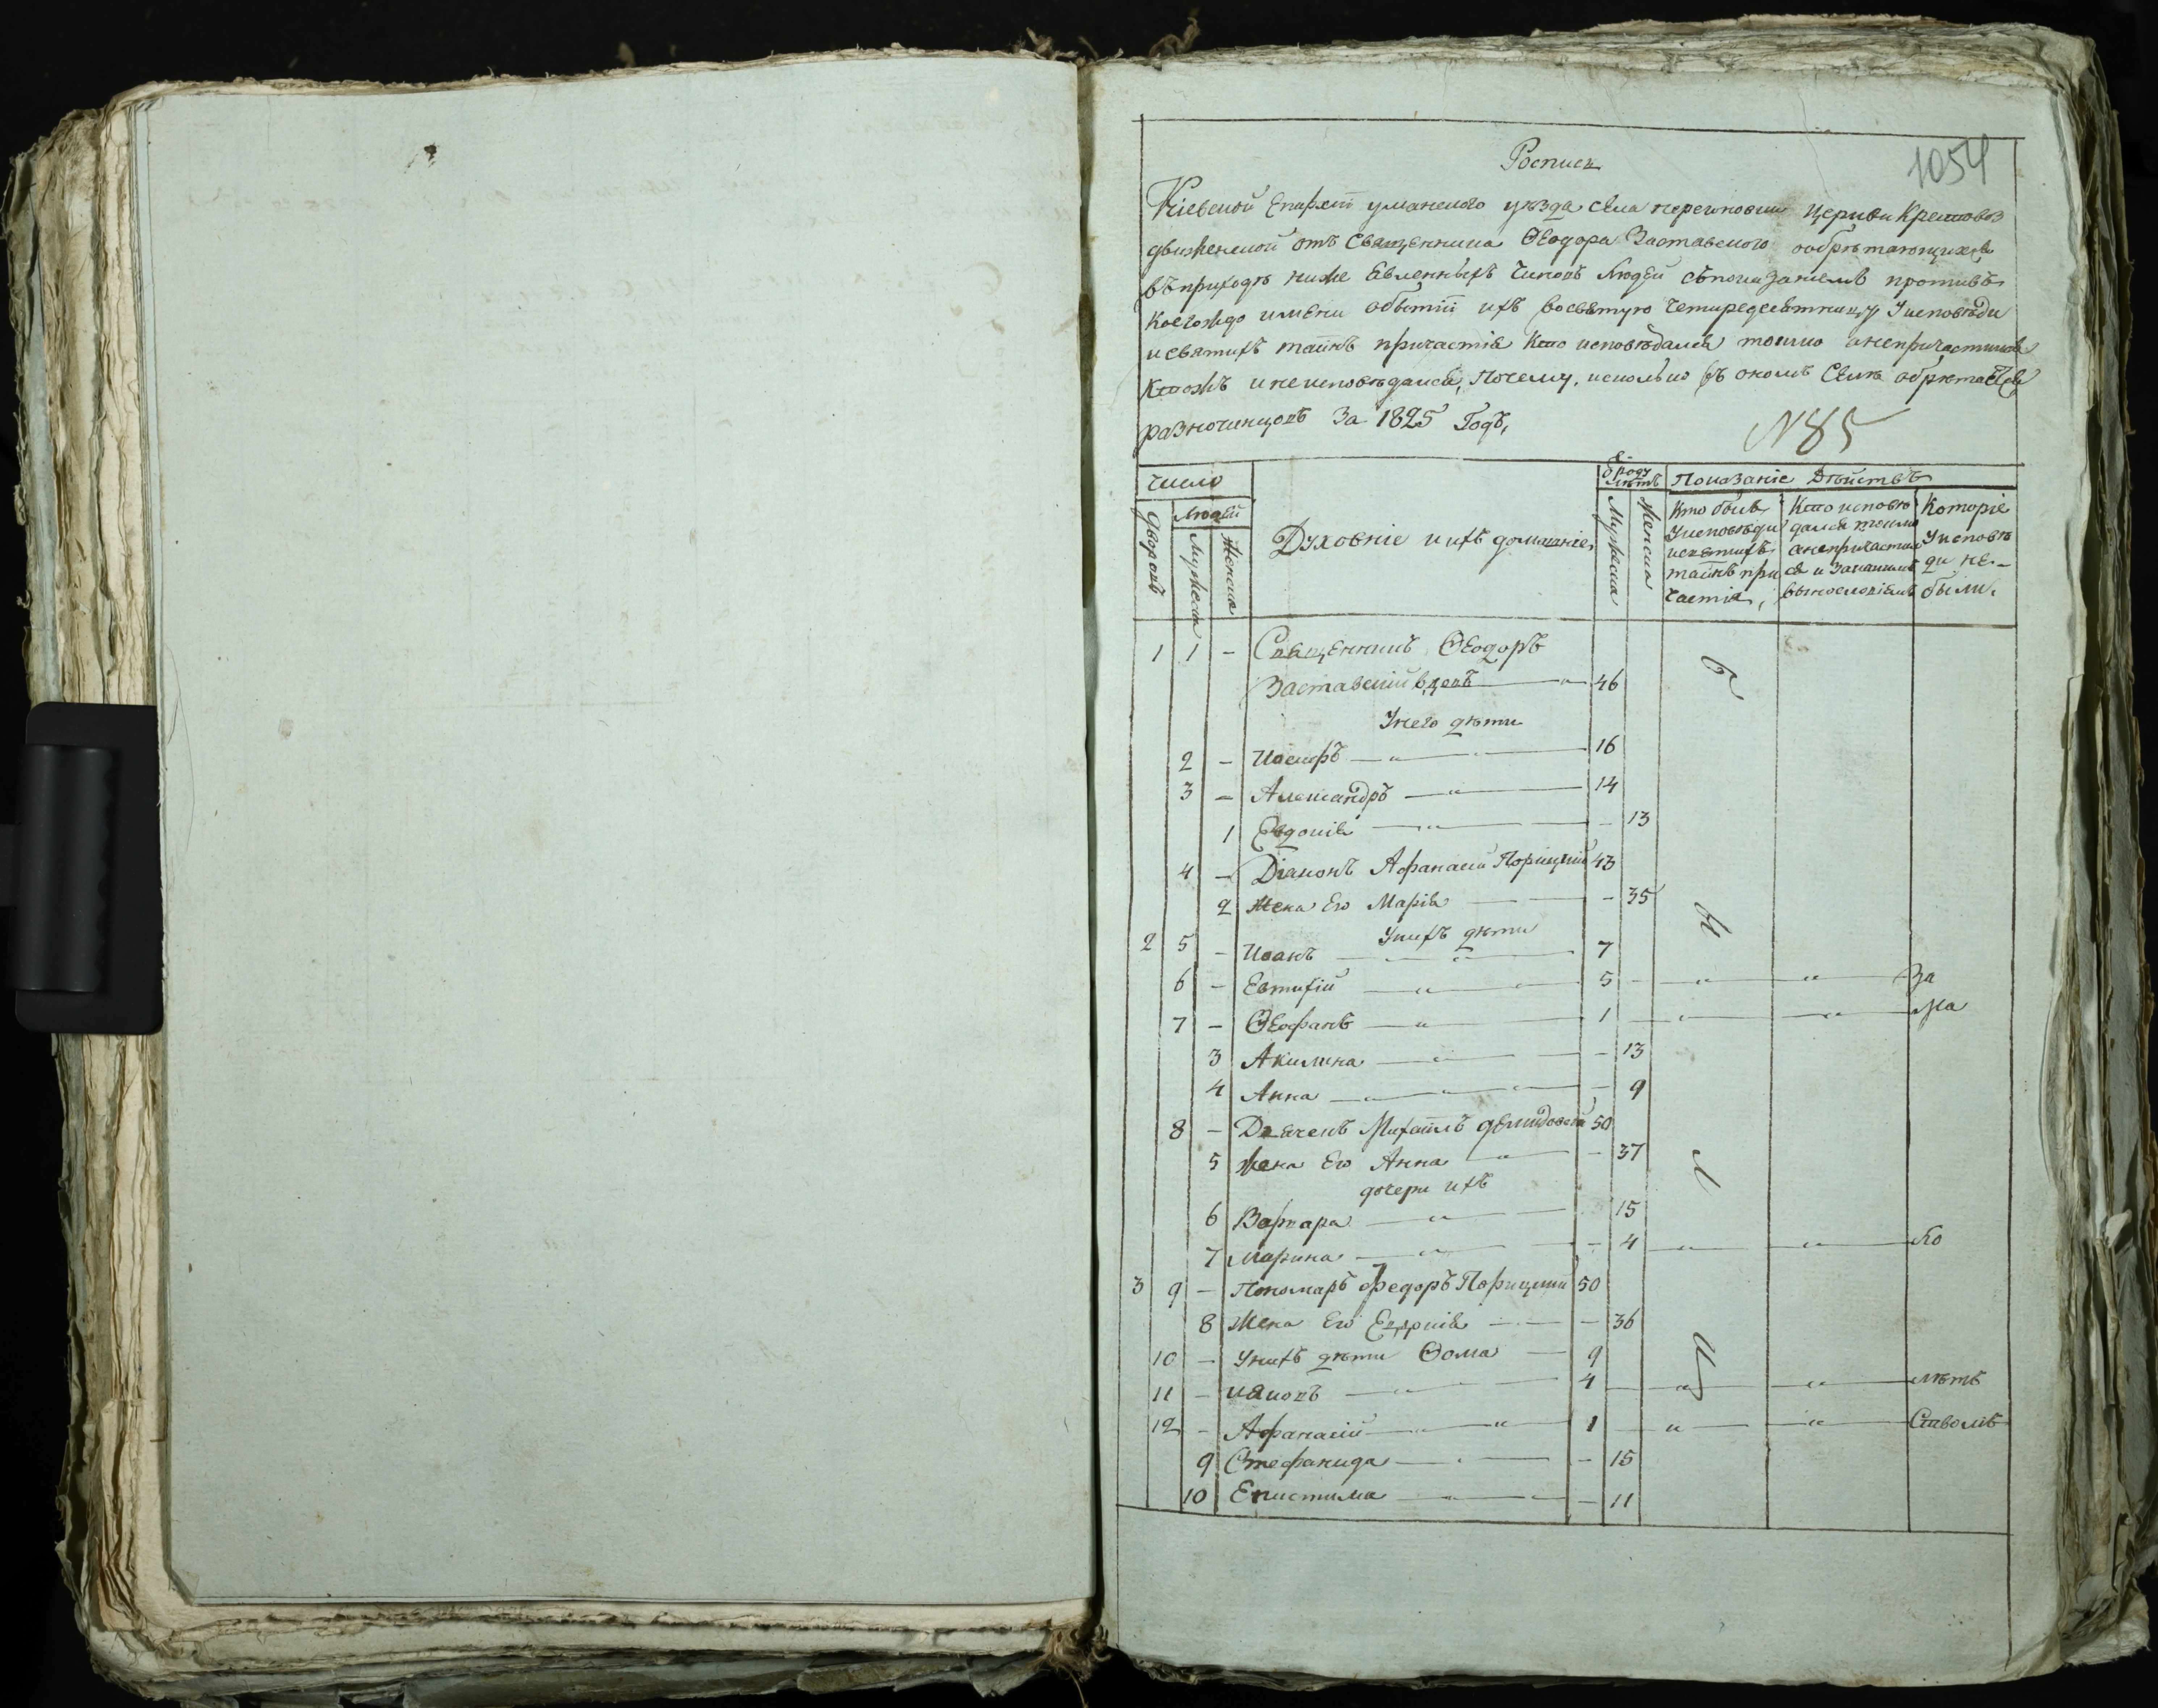 1054
Роспись
Кіевской Епархіи уманского уезда села перегоновки Церкви Крестовоз
движенской отъ Священника Ѳеодора Заставского
въ приходѣ ниже Евленныхъ Чиновъ Людей сѣпоказаніемъ противъ
Коегождо имени обытіи ихъ восвятую Четиредесятницу Уисповѣди
исвятихъ таинъ причастія Кто исповѣдался токмо анепричастился
Ктожъ инеисповѣдался, Почему, исколько въ ономъ Селѣ обрѣтается
разночинцовъ За 1825 Годъ,
N 85
Число
Дворовъ
Людей
Мужеска
Женска
Духовніе и ихъ домашніе,
Ѿ роду лѣтъ
Мужеска
Женска
Показаніе Дѣйствъ
Кто былъ Уисповѣди исвятихъ таинъ при частія,
Кто исповѣ дался токмо анепричастил ся и Закакимъ винословіемъ
Которіе Уисповѣ ди не- были.
1 1 - Священникъ Ѳеодоръ
Заставскій вдовъ 46
Унего дѣти
2 - Иосифъ 16
3 - Александръ 14
1 Евдокія - 13
4 - Діаконъ Афанасій Порицкій 43
2 Жена Его Марія - 35
Унихъ дѣти
2 5 - Иоанъ 7
6 - Евтихій 5 - За
7 - Ѳеофанъ 1 ма
3 Акилина - 13
4 Анна - 9
8 - Дьячекъ Михаилъ 50
5 Жена Его Анна - 37
дочери ихъ
6 Варвара 15
7 Марина - 4 ло
3 9 - Пономаръ Федоръ Порицкій 50
8 Жена Его Евдокія - 36
10 - Унихъ дѣти Ѳома 9
11 - иаковъ 4 лѣтъ
12 - Афанасій 1 Ствомъ
9 Стефанида - 15
10 Епистима - 11